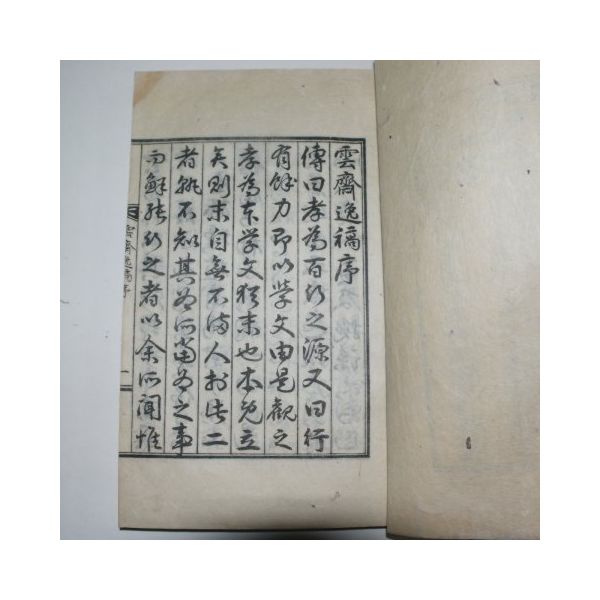 雲齋逸稿序
傳曰孝為百行之源又曰行
有餘力即以學文由是觀之
孝為本学文猶末也本既立
矣則末自無不海人於此二
者孰不知其為所當為之事
而鮮能行之者以余所聞惟
雲齋逸稿序 一